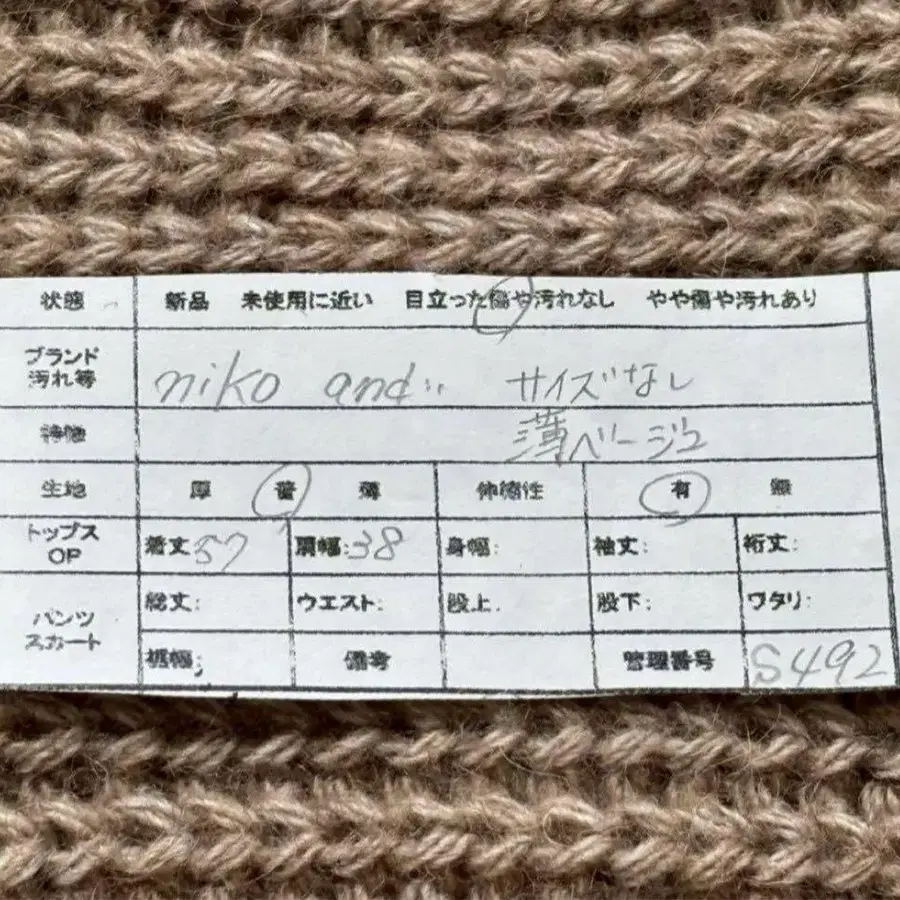 状態 新品 未使用に近い 目立った傷や汚れなし やや傷や汚れあり
ブランド
汚れ等
niko and... サイズなし
特徴 薄ベージュ
生地 厚 普 薄 伸縮性 有 無
トップス
OP
着丈:57 肩幅:38 身幅: 袖丈: 裄丈:
パンツ
スカート
総丈: ウエスト: 股上: 股下: ワタリ:
裾幅: 備考 管理番号 S492